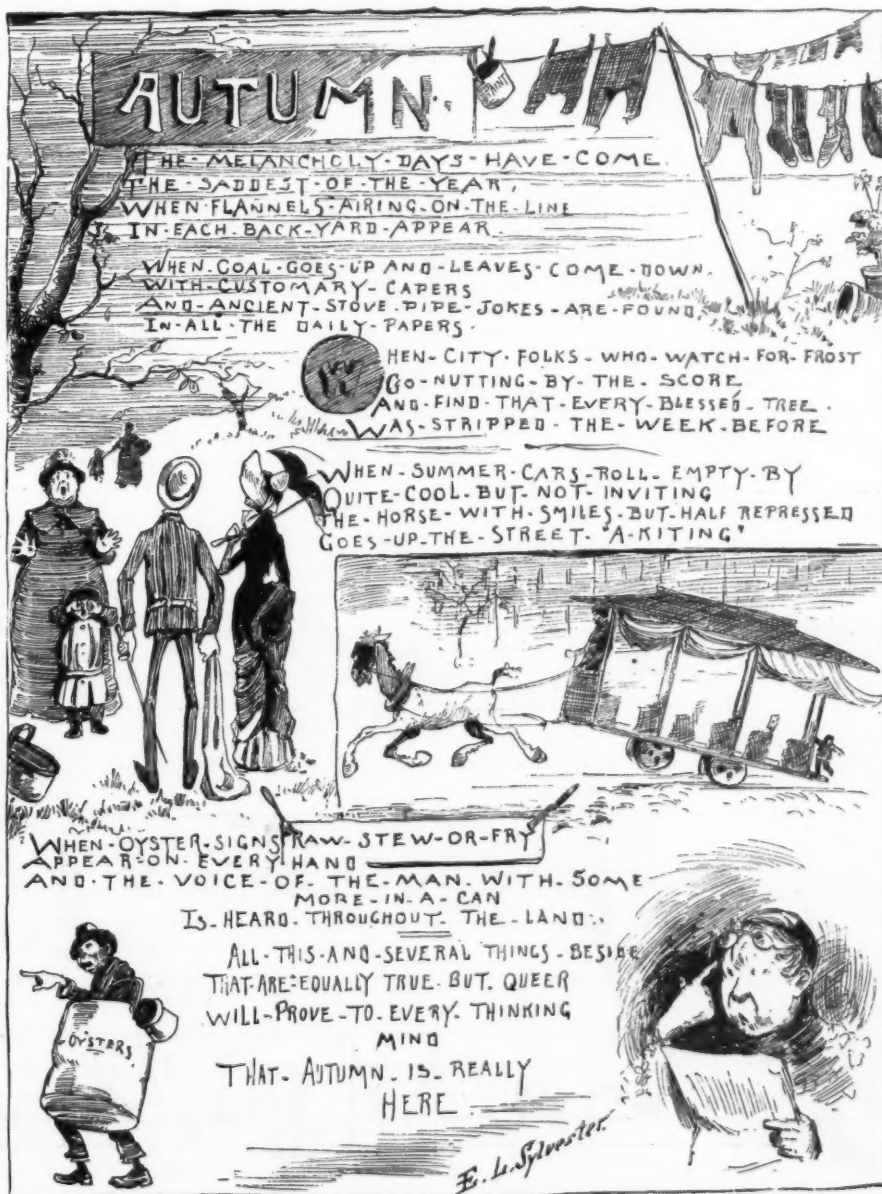 AUTUMN.
PAINT
THE-MELANCHOLY-DAYS-HAVE-COME.
THE-SADDEST-OF-THE-YEAR,
WHEN-FLANNELS-AIRING-ON-THE-LINE
IN-EACH-BACK-YARD-APPEAR.
WHEN-COAL-GOES-UP AND-LEAVES-COME-DOWN.
WITH-CUSTOMARY-CAPERS
AND-ANCIENT-STOVE-PIPE-JOKES-ARE-FOUND,
IN-ALL-THE DAILY-PAPERS.
WHEN-CITY-FOLKS-WHO-WATCH-FOR-FROST
GO-NUTTING-BY-THE-SCORE
AND-FIND-THAT-EVERY-BLESSED-TREE.
WAS-STRIPPED-THE-WEEK-BEFORE
WHEN-SUMMER-CARS-ROLL-EMPTY-BY
QUITE-COOL-BUT-NOT-INVITING
THE-HORSE-WITH-SMILES-BUT-HALF REPRESSED
GOES-UP-THE-STREET-"A-KITING"
WHEN-OYSTER-SIGNS RAW-STEW-OR-FRY
APPEAR-ON-EVERY HAND
AND-THE-VOICE-OF-THE-MAN-WITH-SOME
MORE-IN-A-CAN
IS-HEARD-THROUGHOUT-THE-LAND.
ALL-THIS-AND-SEVERAL THINGS-BESIDE
THAT-ARE-EQUALLY TRUE-BUT-QUEER
WILL-PROVE-TO-EVERY-THINKING
MIND
THAT-AUTUMN-IS-REALLY
HERE
OYSTERS
E. L. Sylvester.